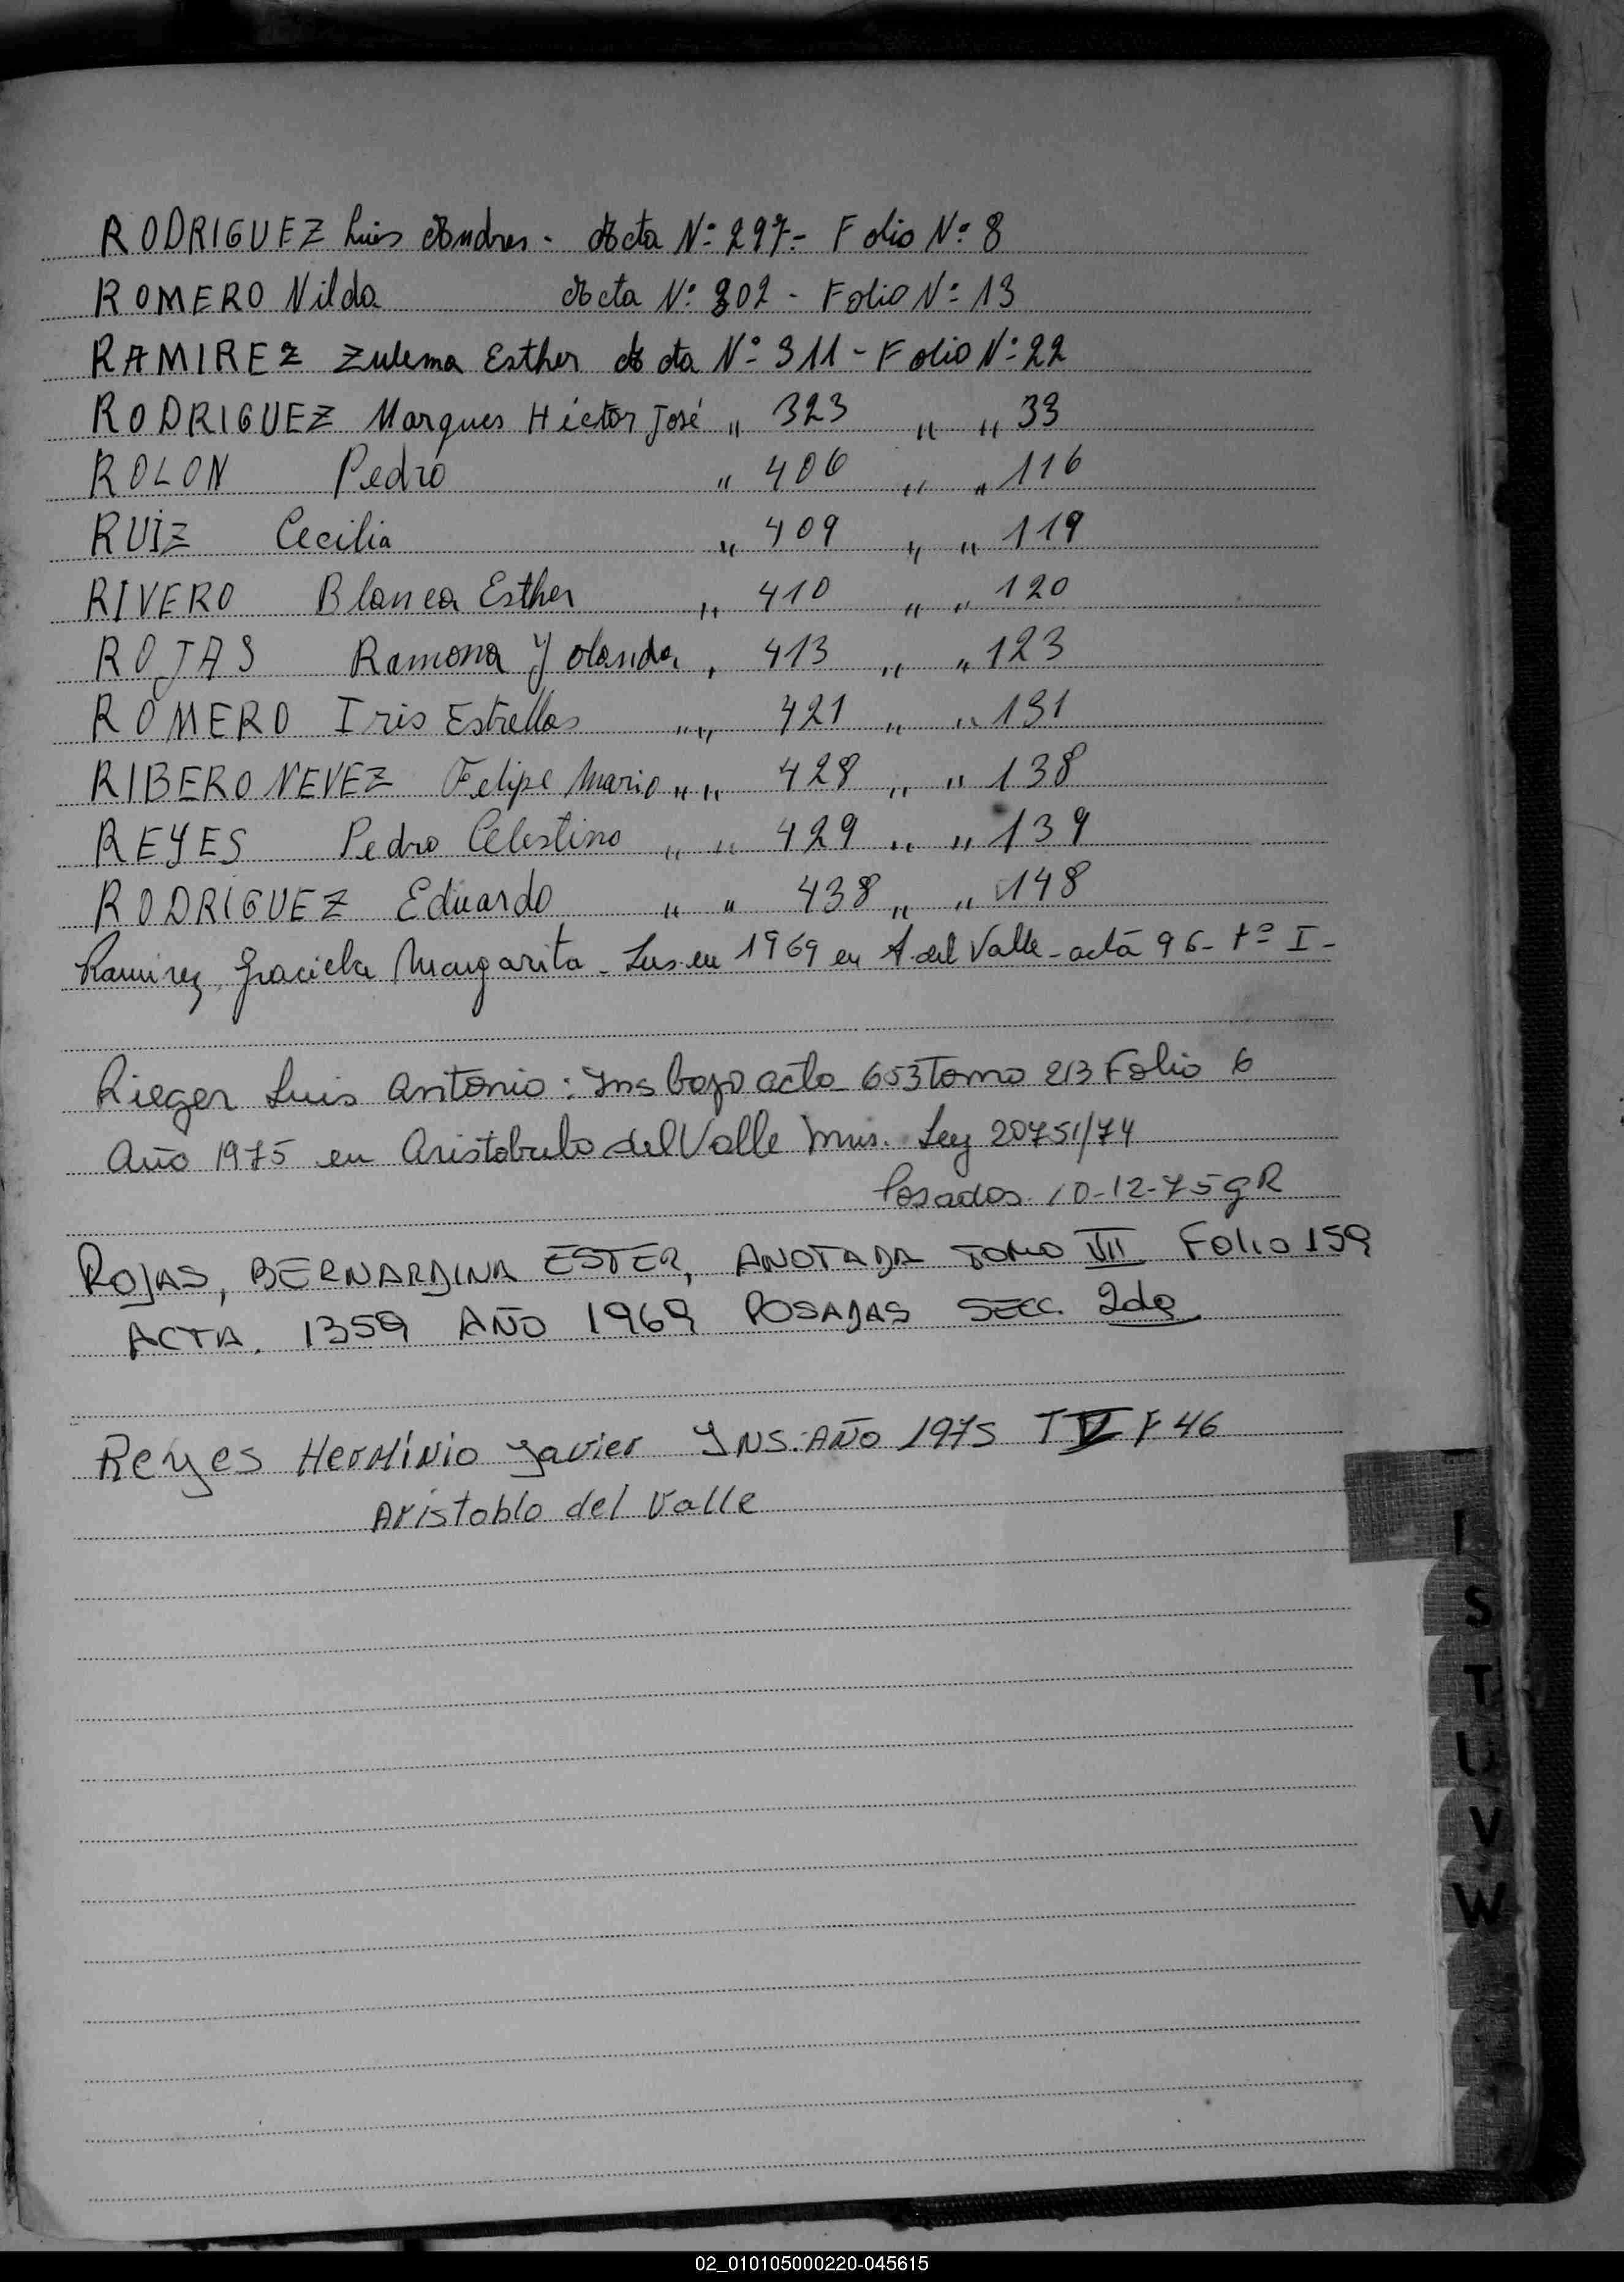 RODRIGUEZ Luis Andres. Acta N° 297.- Folio N° 8
ROMERO Nilda Acta N° 302 - Folio N° 13
RAMIREZ Zulema Esther Acta N° 311 - Folio N° 22
RODRIGUEZ Marques Héctor José " 323 " " 33
ROLON Pedro " 406 " " 116
RUIZ Cecilia " 409 " " 119
RIVERO Blanca Esther " 410 " " 120
ROJAS Ramona Yolanda " 413 " " 123
ROMERO Iris Estrella " " 421 " " 131
RIBERO NEVEZ Felipe Mario " " 428 " " 138
REYES Pedro Celestino " " 429 " " 139
RODRIGUEZ Eduardo " " 438 " " 148
Ramirez, Graciela Margarita - Ins. en 1969 en A. del Valle - acta 96 - t° I -
Rieger Luis Antonio: Ins bajo acta 653 Tomo 2/3 Folio 6
Año 1975 en Aristobulo del Valle Mnes. Ley 20751/74
Posadas 10-12-75 gR
ROJAS, BERNARDINA ESTER, ANOTADA TOMO VII FOLIO 159
ACTA. 1359 AÑO 1969 POSADAS SECC. 2da
Reyes HerMiNio Javier INS. AÑO 1975 T V F 46
Aristoblo del Valle
S
T
U
V
W
02_010105000220-045615